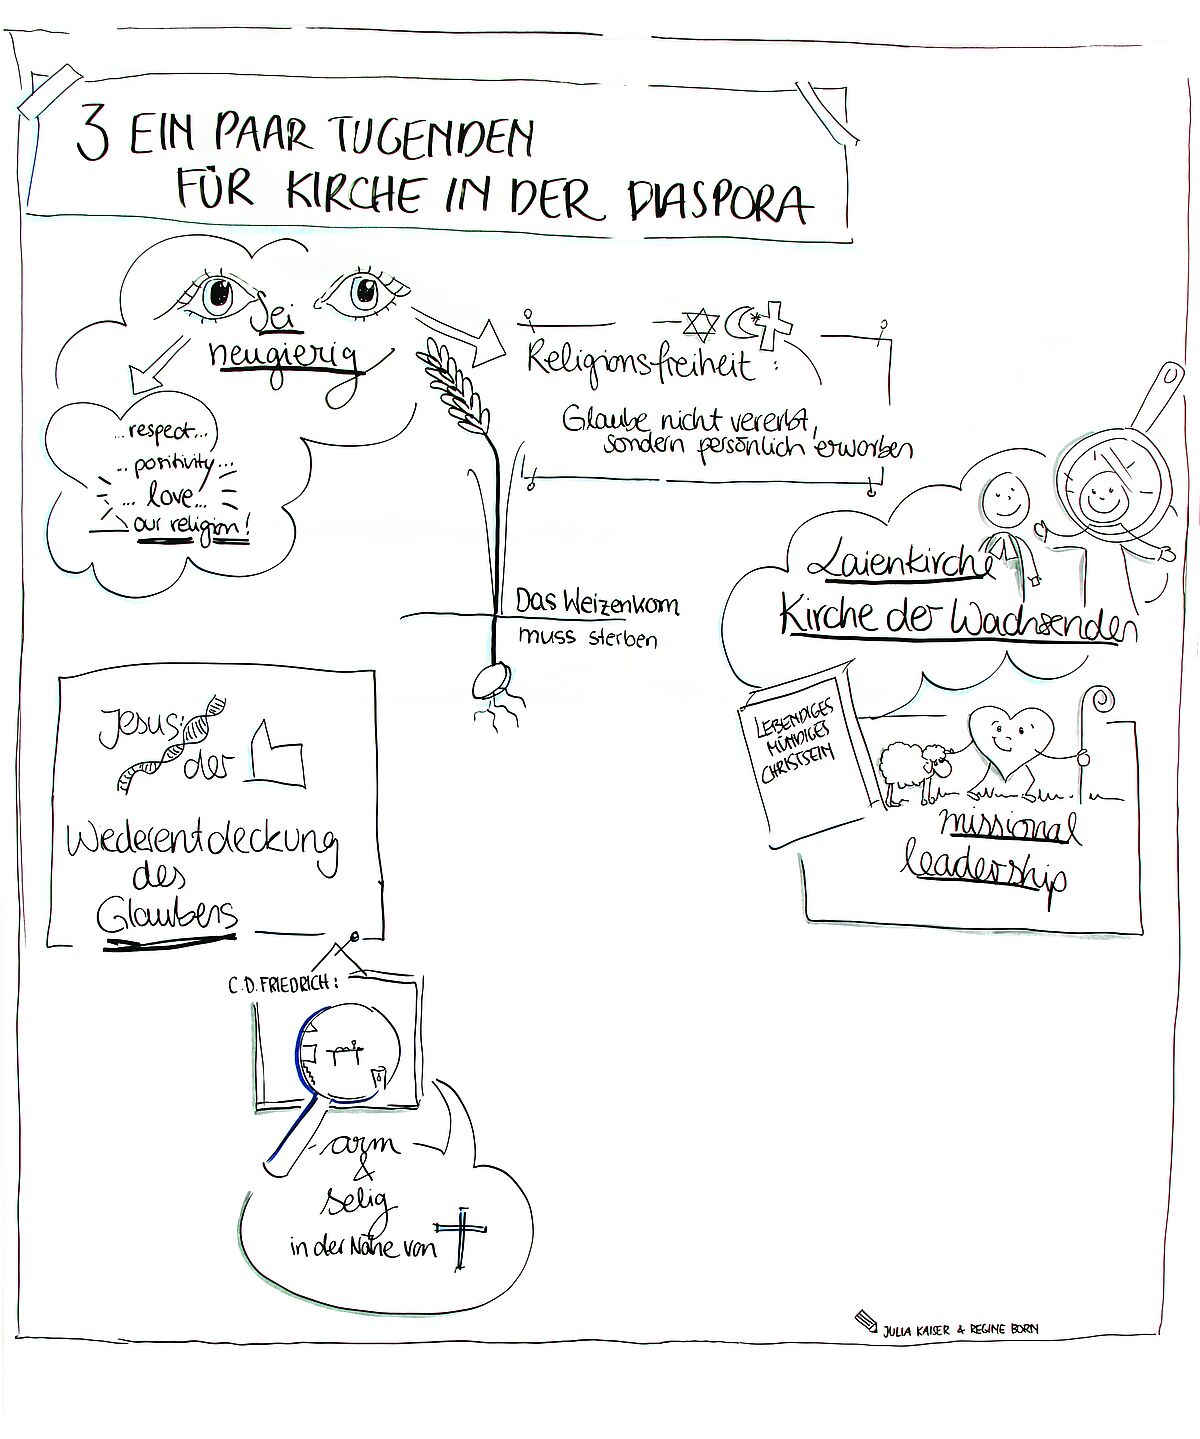 3 EIN PAAR TUGENDEN
FÜR KIRCHE IN DER DIASPORA
Sei
neugierig
...respect...
... positivity...
... love...
our religion!
Religionsfreiheit:
Glaube nicht vererbt,
sondern persönlich erworben
Das Weizenkorn
muss sterben
Laienkirche
Kirche der Wachsenden
LEBENDIGES
MÜNDIGES
CHRISTSEIN
missional
leadership
Jesus:
der
Wiederentdeckung
des
Glaubens
C.D. FRIEDRICH:
arm
&
selig
in der Nähe von
JULIA KAISER & REGINE BORN